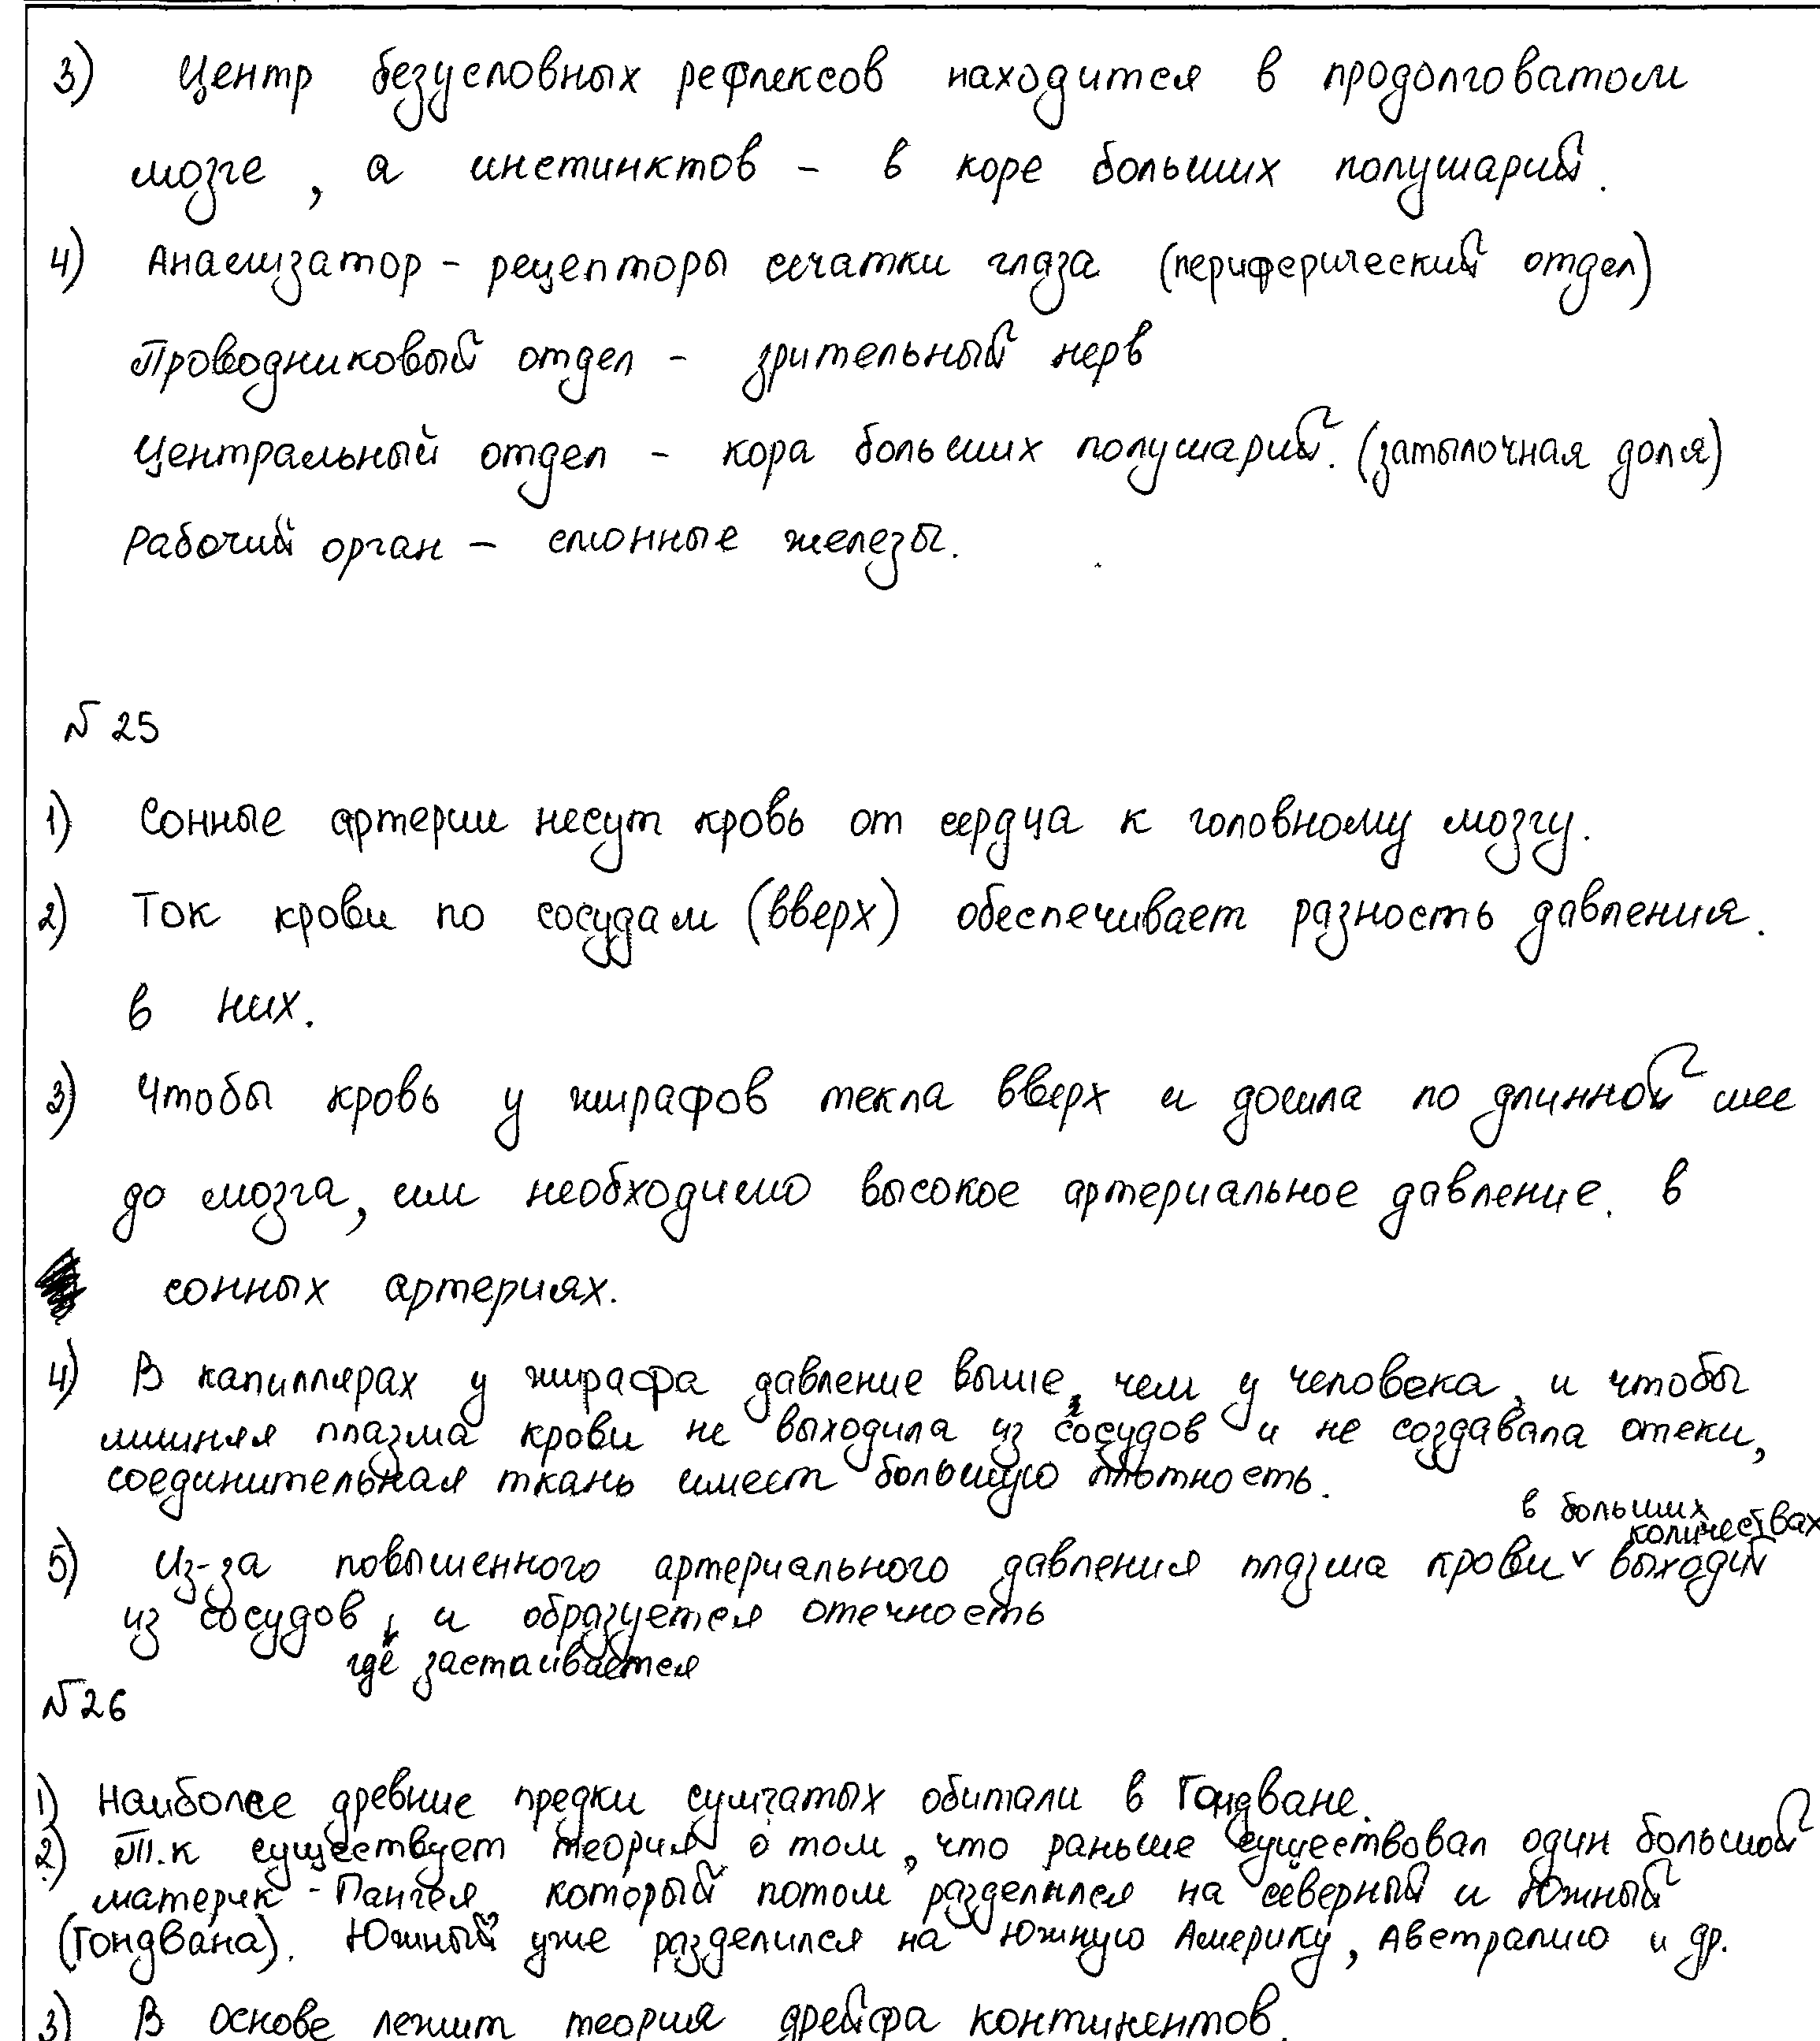 3) Центр безусловных рефлексов находится в продолговатом
мозге, а инстинктов - в коре больших полушарий.
4) Анализатор - рецепторы сечатки глаза (периферический отдел)
Проводниковый отдел - зрительный нерв
Центральный отдел - кора больших полушарий. (затылочная доля)
Рабочий орган - слюнные железы.
№ 25
1) Сонные артерии несут кровь от сердца к головному мозгу.
2) Ток крови по сосудам (вверх) обеспечивает разность давления.
в них.
3) Чтобы кровь у жирафов текла вверх и дошла по длинной шее
до мозга, им необходимо высокое артериальное давление. в
сонных артериях.
4) В капиллярах у жирафа давление выше, чем у человека, и чтобы
лишняя плазма крови не выходила из сосудов и не создавала отеки,
соединительная ткань имеет большую плотность.
в больших
количествах
5) Из-за повышенного артериального давления плазма крови ˅ выходит
из сосудов, и образуется отечность
где застаивается
№ 26
1) Наиболее древние предки сумчатых обитали в Гондване.
2) Т.к существует теория о том, что раньше существовал один большой
материк - Пангея, который потом разделился на северный и Южный
(Гондвана). Южный уже разделился на Южную Америку, Австралию и др.
3) В основе лежит теория дрейфа континентов.